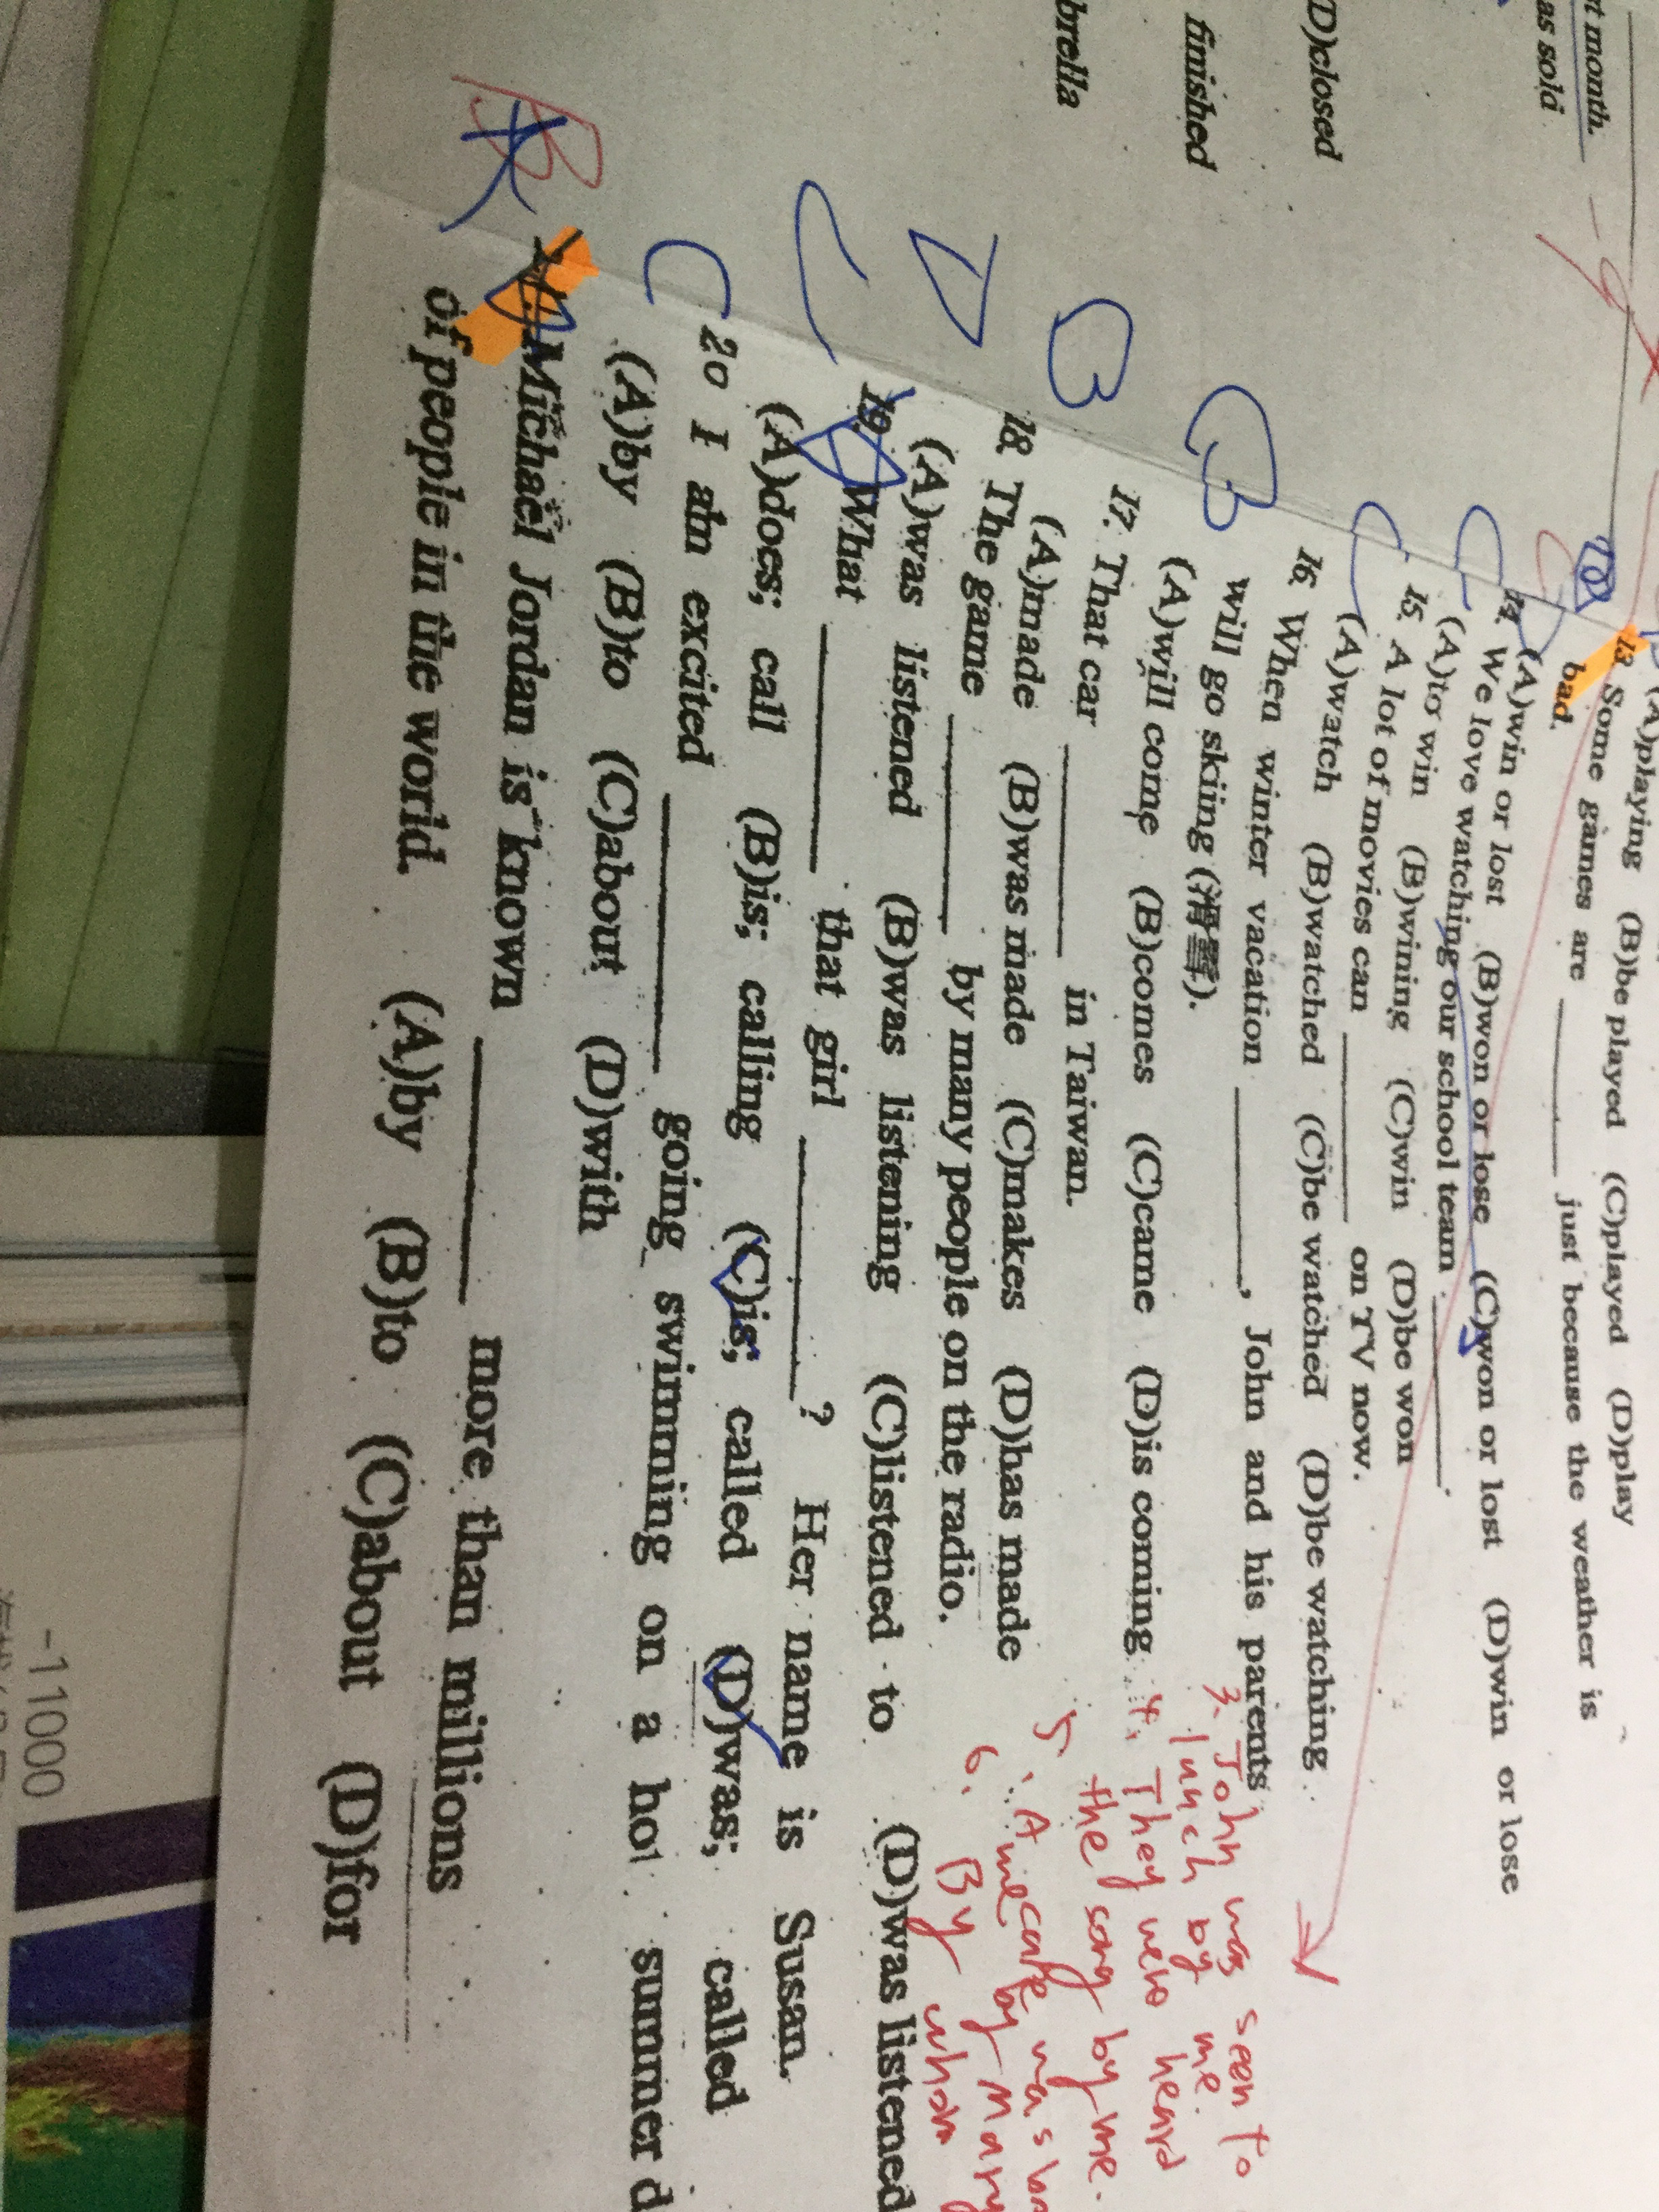 rt month.
as sold
D)closed
finished
brella
(A)playing (B)be played (C)played (D)play
13. Some games are ______ just because the weather is
bad.
(A)win or lost (B)won or lose (C)won or lost (D)win or lose
14. We love watching our school team ______.
(A)to win (B)wining (C)win (D)be won
15. A lot of movies can ______ on TV now.
(A)watch (B)watched (C)be watched (D)be watching
16. When winter vacation ______, John and his parents
will go skiing (滑雪).
(A)will come (B)comes (C)came (D)is coming
17. That car ______ in Taiwan.
(A)made (B)was made (C)makes (D)has made
18. The game ______ by many people on the radio.
(A)was listened (B)was listening (C)listened to (D)was listened
19. What ______ that girl ______? Her name is Susan.
(A)does; call (B)is; calling (C)is; called (D)was; called
20 I am excited ______ going swimming on a hot summer d
(A)by (B)to (C)about (D)with
Michael Jordan is known ______ more than millions
of people in the world. (A)by (B)to (C)about (D)for
C
C
B
B
D
C
C
B
3. John was seen to
lunch by me.
4. They were heard
the song by me.
5. A
by Mary
6. By whom
-11000